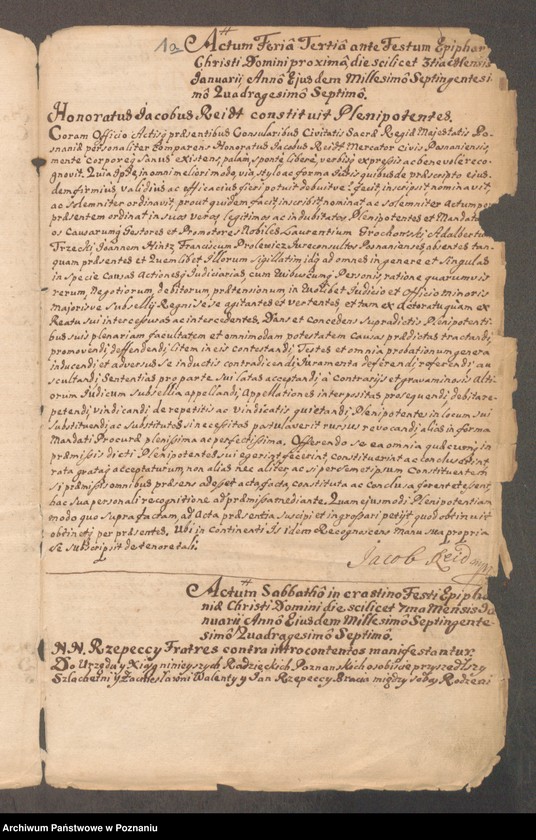 1a
Actum Feriâ Tertiâ ante Festum Epiphan
Christi Domini proximâ, die scilicet 3tia Mensis
Januarii Annô Ejusdem Millesimô Septingentesi
mô Quadragesimô Septimô.
Honoratus Jacobus Reidt constituit Plenipotentes.
Coram Officio Actisq̃ præsentibus Consularibus Civitatis Sacræ Regiæ Majestatis Pos-
naniæ personaliter Comparens Honoratus Jacobus Reidt Mercator Civis Posnaniensis,
mente corporeq̃ Sanus existens, palam, sponte libere, verbisq̃ expressis ac benevole recog-
novit. Quia Ipse, in omni meliori modo, via, stylo ac forma Juris quibus de præscripto ejus-
dem firmius, validius ac efficacius fieri potuit debuitve: fecit, inscripsit nominavit,
ac solemniter ordinavit, prout quidem facit, inscribit, nominat ac solemniter Actum per
præsentem ordinat in suos veros legitimos ac indubitatos Plenipotentes et Mandata
os Causarumq̃ Gestores et Promotores Nobiles Laurentium Grochomskj Adalbertum
Trzeckj Joannem Hintz Franciscum Prolewicz Jureconsultos Posnanienses absentes tan-
quam præsentes et Quemlibet Illorum Sigillatim idq̃ ad omnes in genere et Singulas
in specie Causas Actionesq̃ Judiciarias, cum Quibuscumq̃ Personis ratione quarumvis
rerum, Negotiorum, debitorum prætensionum in Quolibet Judicio et Officio minoris
Majorisve Subsellij Regni se se agitantes et vertentes et tam ex Actoratu quam ex
Reatu sui intercessuras ac intercedentes. Dans et Concedens Supradictis Plenipotenti-
bus suis plenariam facultatem et omnimodam potestatem Causas prædictas tractandi,
promovendi, deffendendi, Litem in eis contestandi, Testes et omnia probationum genera
inducendi et adversus se inductis contradicendi, Juramenta deferendi, referendi au-
scultandi, Sententias pro parte Sui latas acceptandi, à Contrarijs et gravaminosis Alti-
orum Judicum Subsellia appellandi, Appellationes interpositas prosequendi, debita re-
petendi, vindicandi de repetitis ac vindicatis quietandi, Plenipotentes in locum sui
substituendi ac Substitutos si necessitas postulaverit rursus revocandi, alias in forma
Mandati Procuræ plenissima ac perfectissima. Offerendo se ea omnia quæcumq̃ in
præmissis dicti Plenipotentes sui egerint, fecerint, constituerint ac concluserint,
rata grataq̃ accepturum, non alias nec aliter, ac si per semetipsum Constituentem
si præmissis omnibus præsens adesset acta facta, constituta ac Conclusa forent et essent
hac sua personali recognitione ad præmissa mediante. Quam ejusmodi Plenipotentiam
modo quo supra factam, ad Acta præsentia suscipi et ingrossari petijt quod obtinuit
obtinetq̃ per præsentes. Ubi in Continenti Is idem Recognoscens manu sua propria
se subscripsit de tenore tali.
Jacob Reid mppr
Actum Sabbathô in crastino Festi Epipha
niæ Christi Domini die scilicet 7ma Mensis Ja
nuarii Annô Ejusdem Millesimô Septingente-
simô Quadragesimô Septimô.
N.N. Rzepeccy Fratres contra introcontentos manifestantur.
Do Urzędu y Xiąg ninieyszych Radzieckich Poznanskich osobiscie przyszedłszy
Szlachetni y Zacnie Sławni Walenty y Jan Rzepeccy Bracia między sobą Rodzeni
Archiwum Państwowe w Poznaniu